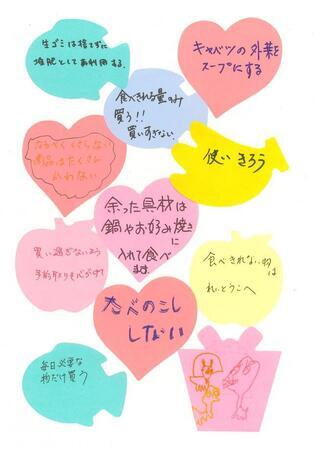 生ゴミは捨てずに
堆肥として再利用する。
キャベツの外葉を
スープにする
食べきれる量のみ
買う!!
買いすぎない
なるべくくさらない
商品はたくさん
かわない
使いきろう
余った具材は
鍋やお好み焼き
に
入れて食べ
ます。
買い過ぎないよう
予約取りを心がけて
食べきれない物
は
れいとうこへ
たべのこし
しない
毎日必要な
物だけ買う